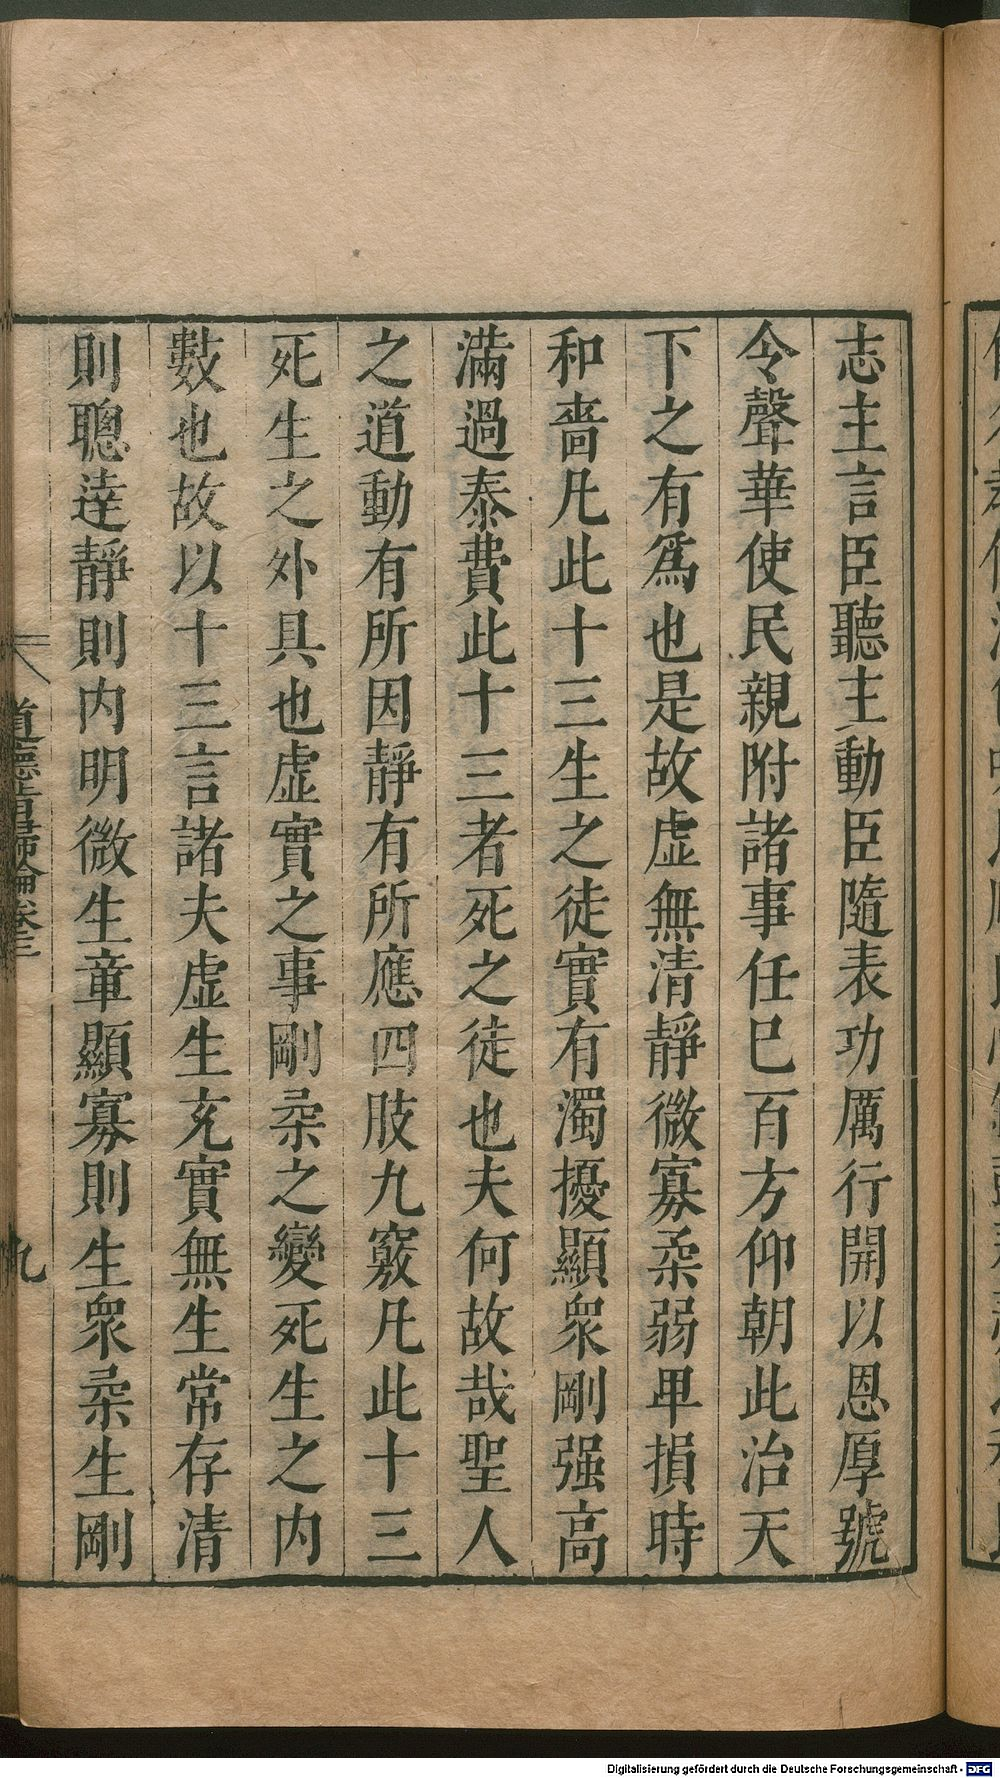 志主言臣聽主動臣隨表功厲行開以恩厚號
令聲華使民親附諸事任巳百方仰朝此治天
下之有爲也是故虛無清靜微寡柔弱卑損時
和嗇凡此十三生之徒實有濁擾顯衆剛强高
滿過泰費此十三者死之徒也夫何故哉聖人
之道動有所因靜有所應四肢九竅凡此十三
死生之外具也虛實之事剛柔之變死生之內
數也故以十三言諸夫虛生充實無生常存清
則聰達靜則內明微生章顯寡則生衆柔生剛
道德指歸論卷三
九
Digitalisierung gefördert durch die Deutsche Forschungsgemeinschaft - DFG